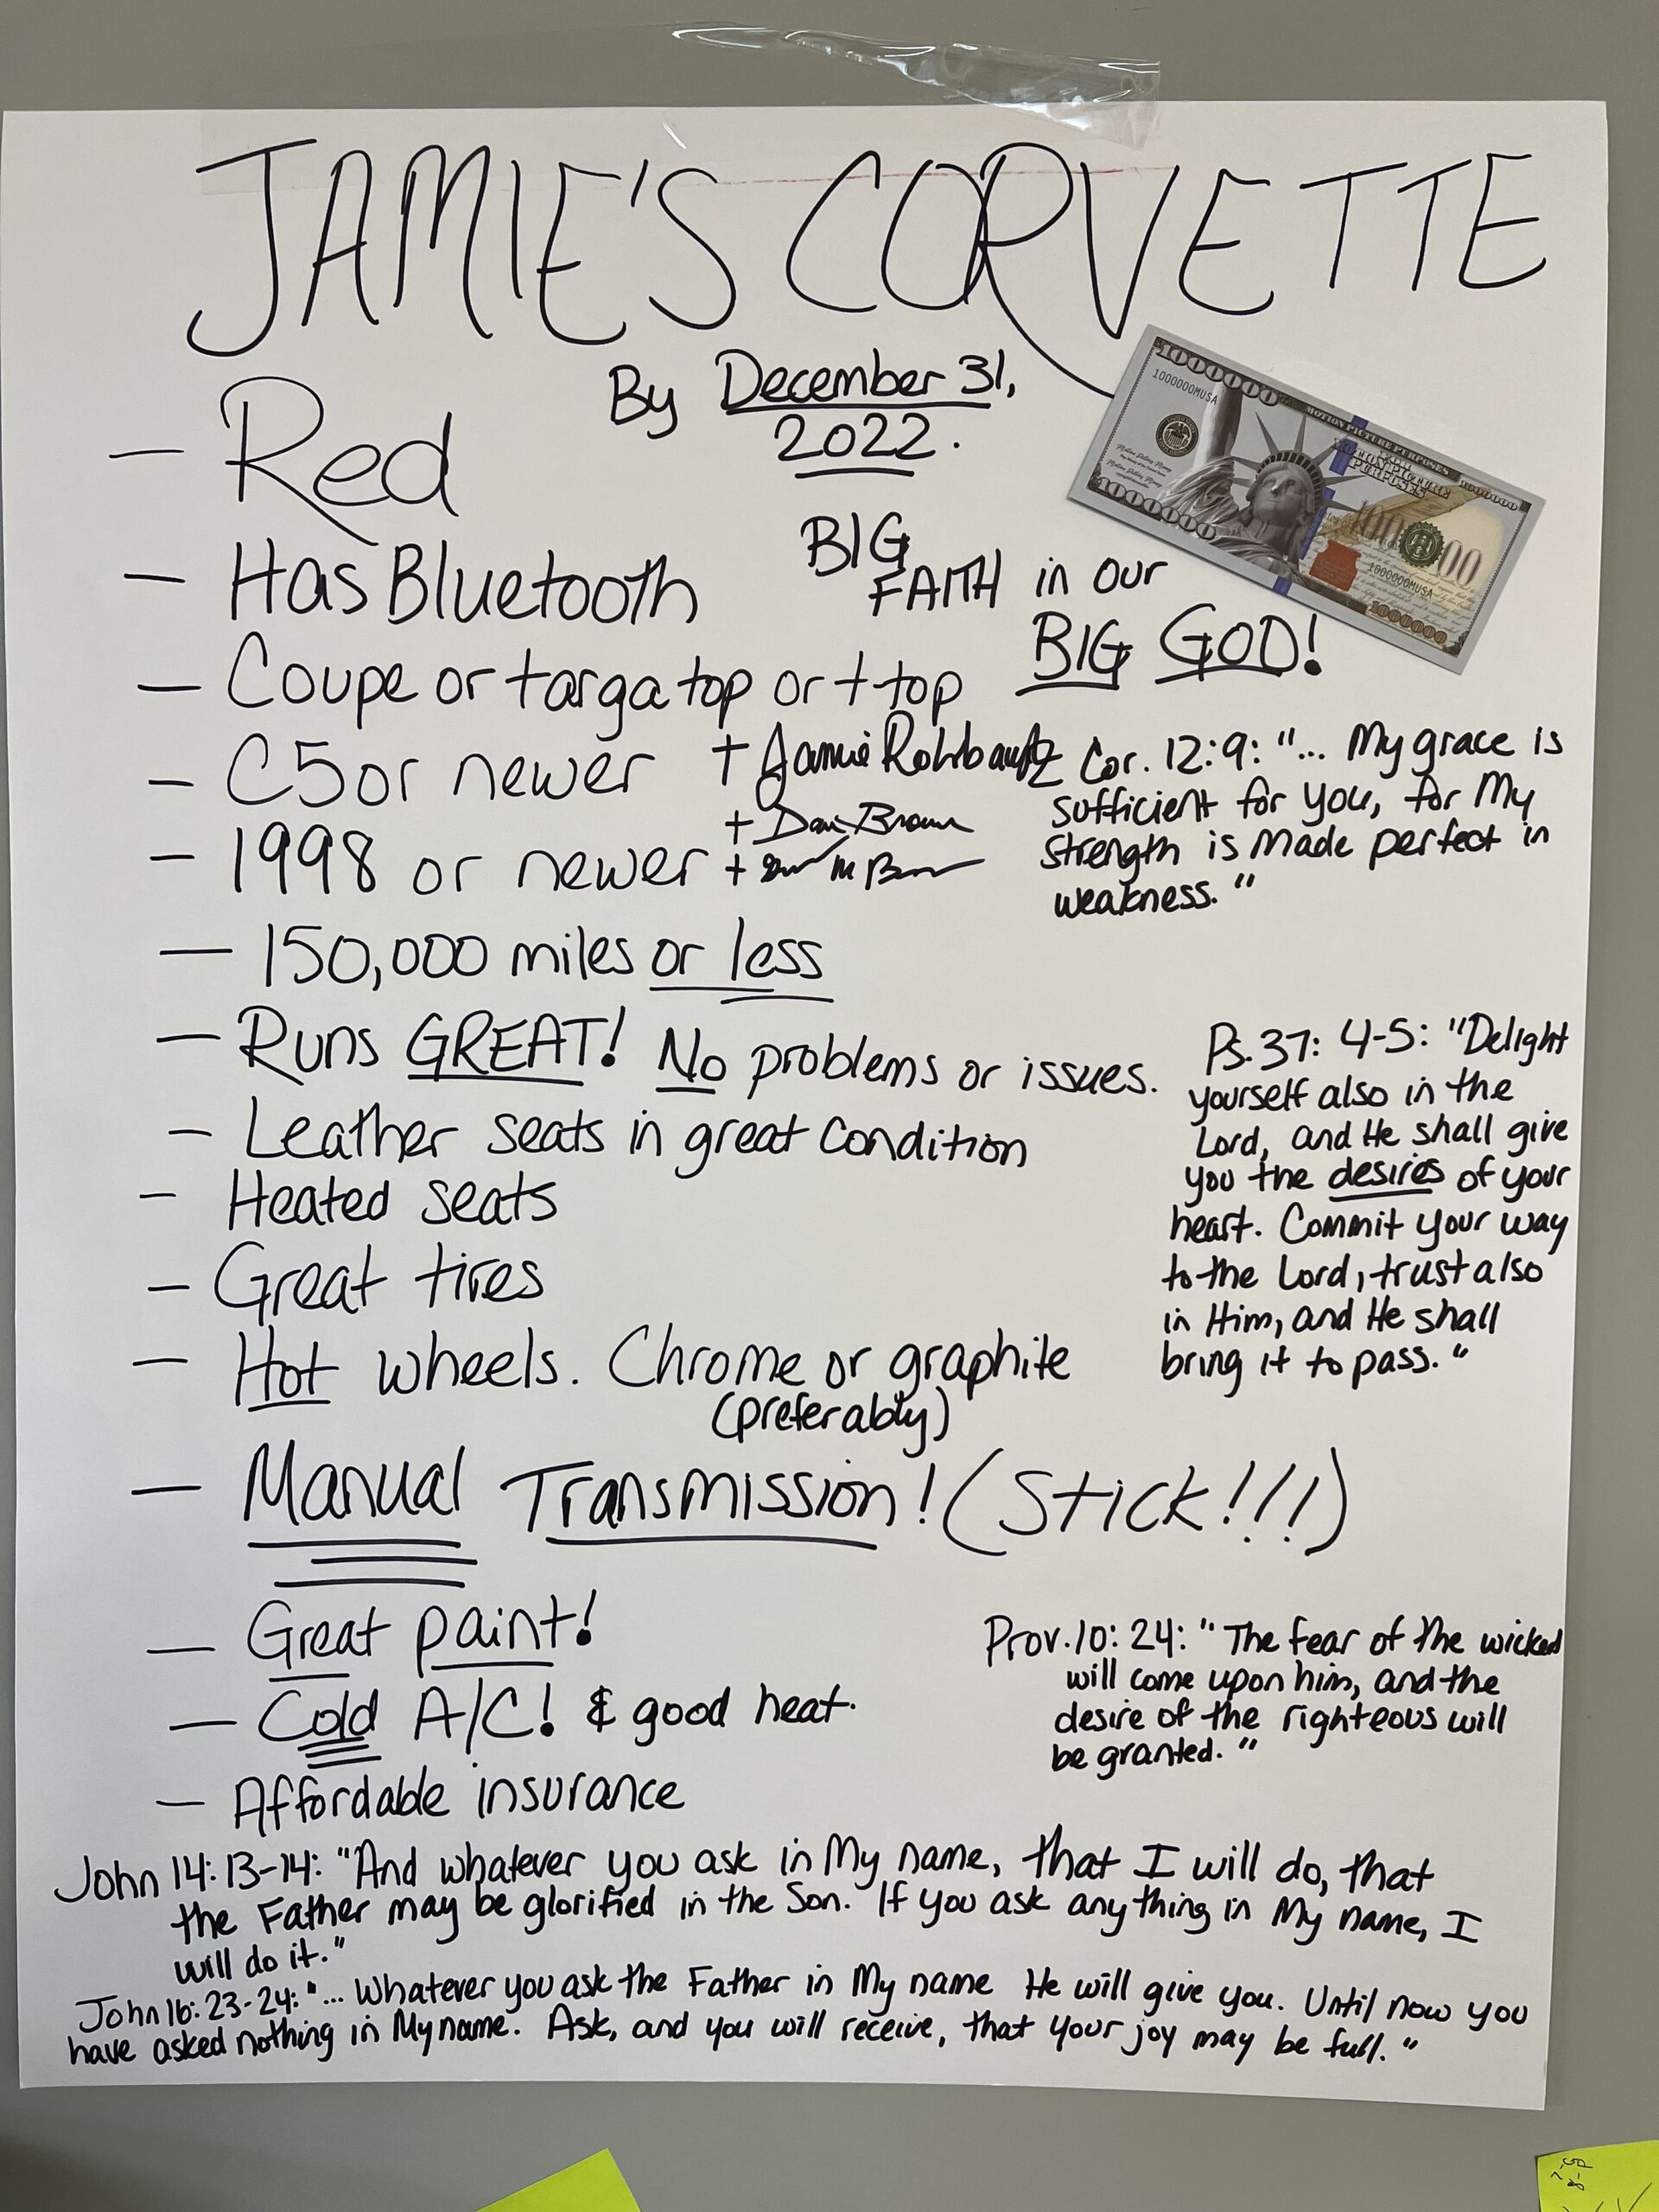 JAMIE'S CORVETTE
By December 31,
2022.
1000000
1000000MUSA
MOTION PICTURE PURPOSES
MOTION PICTURE
PURPOSES
1000000
1000000
1000000MUSA
1000000
— Red
— Has Bluetooth
BIG
FAITH in our
BIG GOD!
— Coupe or targa top or t-top
— C5 or newer
+ Jamie
+ Brown
— 1998 or newer
+
2 Cor. 12:9: "... My grace is
sufficient for you, for My
strength is made perfect in
weakness."
— 150,000 miles or less
— Runs GREAT! No problems or issues.
— Leather seats in great condition
— Heated seats
— Great tires
— Hot wheels. Chrome or graphite
(preferably)
Ps. 37: 4-5: "Delight
yourself also in the
Lord, and He shall give
you the desires of your
heart. Commit your way
to the Lord, trust also
in Him, and He shall
bring it to pass."
— Manual Transmission! (Stick!!!)
— Great paint!
— Cold A/C! & good heat.
— Affordable insurance
Prov. 10: 24: "The fear of the wicked
will come upon him, and the
desire of the righteous will
be granted."
John 14: 13-14: "And whatever you ask in My name, that I will do, that
the Father may be glorified in the Son. If you ask anything in My name, I
will do it."
John 16: 23-24: "... Whatever you ask the Father in My name He will give you. Until now you
have asked nothing in My name. Ask, and you will receive, that your joy may be full."